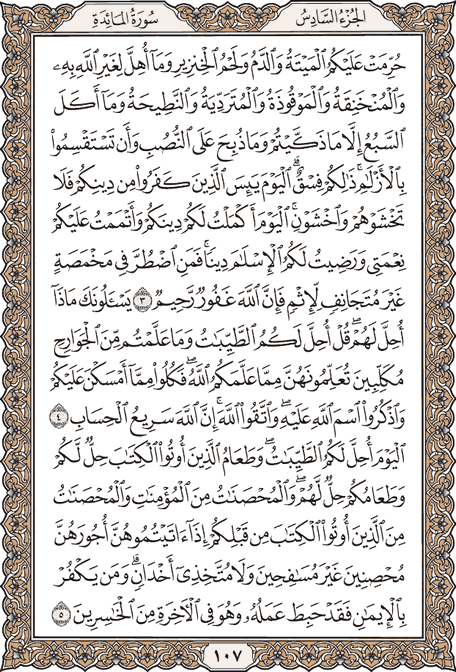 الجزء السادس
سورة المائدة
حُرِّمَتْ عَلَيْكُمُ ٱلْمَيْتَةُ وَٱلدَّمُ وَلَحْمُ ٱلْخِنزِيرِ وَمَآ أُهِلَّ لِغَيْرِ ٱللَّهِ بِهِۦ
وَٱلْمُنْخَنِقَةُ وَٱلْمَوْقُوذَةُ وَٱلْمُتَرَدِّيَةُ وَٱلنَّطِيحَةُ وَمَآ أَكَلَ
ٱلسَّبُعُ إِلَّا مَا ذَكَّيْتُمْ وَمَا ذُبِحَ عَلَى ٱلنُّصُبِ وَأَن تَسْتَقْسِمُوا۟
بِٱلْأَزْلَـٰمِ ۚ ذَٰلِكُمْ فِسْقٌ ۗ ٱلْيَوْمَ يَئِسَ ٱلَّذِينَ كَفَرُوا۟ مِن دِينِكُمْ فَلَا
تَخْشَوْهُمْ وَٱخْشَوْنِ ۚ ٱلْيَوْمَ أَكْمَلْتُ لَكُمْ دِينَكُمْ وَأَتْمَمْتُ عَلَيْكُمْ
نِعْمَتِى وَرَضِيتُ لَكُمُ ٱلْإِسْلَـٰمَ دِينًا ۚ فَمَنِ ٱضْطُرَّ فِى مَخْمَصَةٍ
غَيْرَ مُتَجَانِفٍ لِّإِثْمٍ ۙ فَإِنَّ ٱللَّهَ غَفُورٌ رَّحِيمٌ ٣ يَسْـَٔلُونَكَ مَاذَآ
أُحِلَّ لَهُمْ ۖ قُلْ أُحِلَّ لَكُمُ ٱلطَّيِّبَـٰتُ ۙ وَمَا عَلَّمْتُم مِّنَ ٱلْجَوَارِحِ
مُكَلِّبِينَ تُعَلِّمُونَهُنَّ مِمَّا عَلَّمَكُمُ ٱللَّهُ ۖ فَكُلُوا۟ مِمَّآ أَمْسَكْنَ عَلَيْكُمْ
وَٱذْكُرُوا۟ ٱسْمَ ٱللَّهِ عَلَيْهِ ۖ وَٱتَّقُوا۟ ٱللَّهَ ۚ إِنَّ ٱللَّهَ سَرِيعُ ٱلْحِسَابِ ٤
ٱلْيَوْمَ أُحِلَّ لَكُمُ ٱلطَّيِّبَـٰتُ ۖ وَطَعَامُ ٱلَّذِينَ أُوتُوا۟ ٱلْكِتَـٰبَ حِلٌّ لَّكُمْ
وَطَعَامُكُمْ حِلٌّ لَّهُمْ ۖ وَٱلْمُحْصَنَـٰتُ مِنَ ٱلْمُؤْمِنَـٰتِ وَٱلْمُحْصَنَـٰتُ
مِنَ ٱلَّذِينَ أُوتُوا۟ ٱلْكِتَـٰبَ مِن قَبْلِكُمْ إِذَآ ءَاتَيْتُمُوهُنَّ أُجُورَهُنَّ
مُحْصِنِينَ غَيْرَ مُسَـٰفِحِينَ وَلَا مُتَّخِذِىٓ أَخْدَانٍ ۗ وَمَن يَكْفُرْ
بِٱلْإِيمَـٰنِ فَقَدْ حَبِطَ عَمَلُهُۥ وَهُوَ فِى ٱلْـَٔاخِرَةِ مِنَ ٱلْخَـٰسِرِينَ ٥
١٠٧